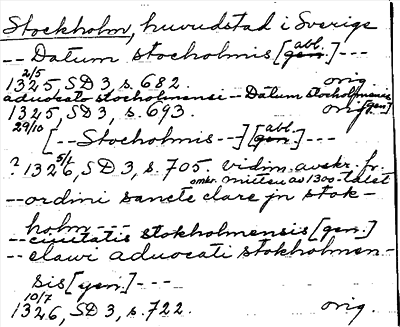 Stockholm, huvudstad i Sverige
-- Datum stocholmis [gen. abl.] ---
1325 2/5, SD 3, s. 682. orig.
advocato stocholmensi -- Datum stocholmensis [gen.]
1325, SD 3, s. 693. orig.
29/10 [-- Stocholmis --] [gen. abl.]
? 1326 5/1, SD 3, s. 705. vidim. avskr. fr. omkr. mitten av 1300-talet
-- ordini sancte clare jn stok-
holm ---
-- ciuitatis stokholmensis [gen.]
-- elawi aduocati stokholmen-
sis [gen.] ---
1326 10/7, SD 3, s. 722. orig.